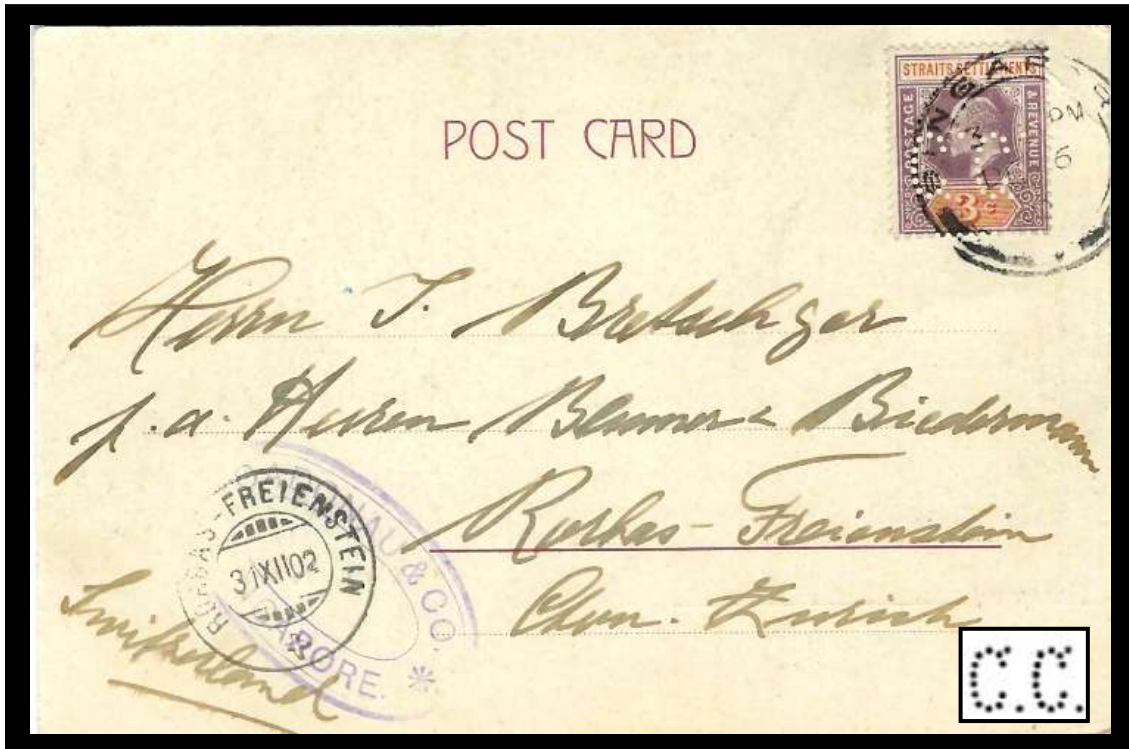 STRAITS SETTLEMENTS
POSTAGE & REVENUE
3c
SINGAP
PM
6
POST CARD
Herrn J. Bretschger
p. a. Herren Blumer & Biedermann
Rorbas-Freienstein
Cton. Zurich
Switzerland
RORBAS-FREIENSTEIN
31XII02
& CO.
PORE.
C.C.